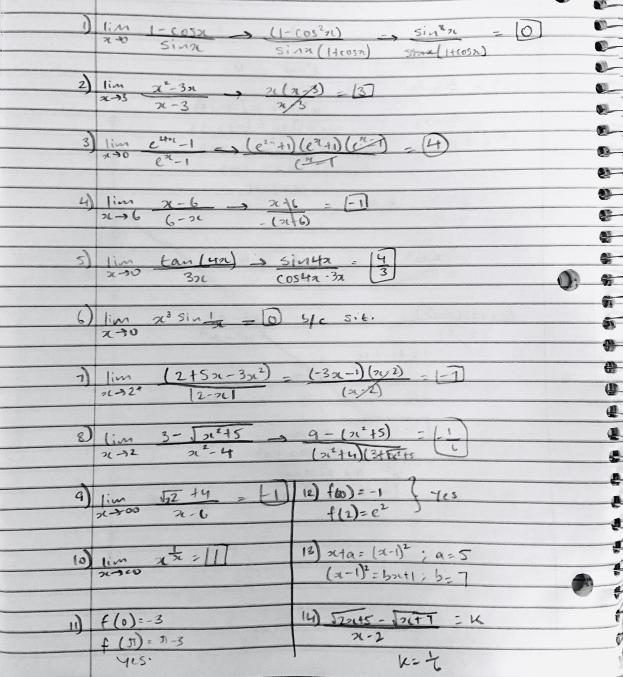 1) lim x→0 (1-cosx)/(sinx) → (1-cos²x)/(sinx(1+cosx)) → (sin²x)/(sinx(1+cosx)) → 0
2) lim x→3 (x²-3x)/(x-3) → (x(x-3))/(x-3) = 3
3) lim x→0 (e^4x-1)/(e^x-1) → ((e^2x+1)(e^x+1)(e^x-1))/(e^x-1) = 4
4) lim x→6 (x-6)/(6-x) → (x+6)/(-(x+6)) = -1
5) lim x→0 (tan(4x))/(3x) → (sin4x)/(cos4x·3x) = 4/3
6) lim x→0 x³ sin 1/x = 0 b/c s.t.
7) lim x→2⁺ (2+5x-3x²)/|2-x| = ((-3x-1)(x-2))/(x-2) = -7
8) lim x→2 (3-√(x²+5))/(x²-4) → (9-(x²+5))/((x²+4)(3+√(x²+5))) = -1/6
9) lim x→-∞ (√x² +4)/(x-6) = -1
12) f(0) = -1
f(2) = e² } Yes
10) lim x→∞ x^(1/x) = 1
13) x+a = (x-1)² ; a=5
(x-1)² = bx+1 ; b=7
11) f(0) = -3
f(π) = π-3
YES.
14) (√(2x+5) - √(x+7))/(x-2) = K
K = 1/6